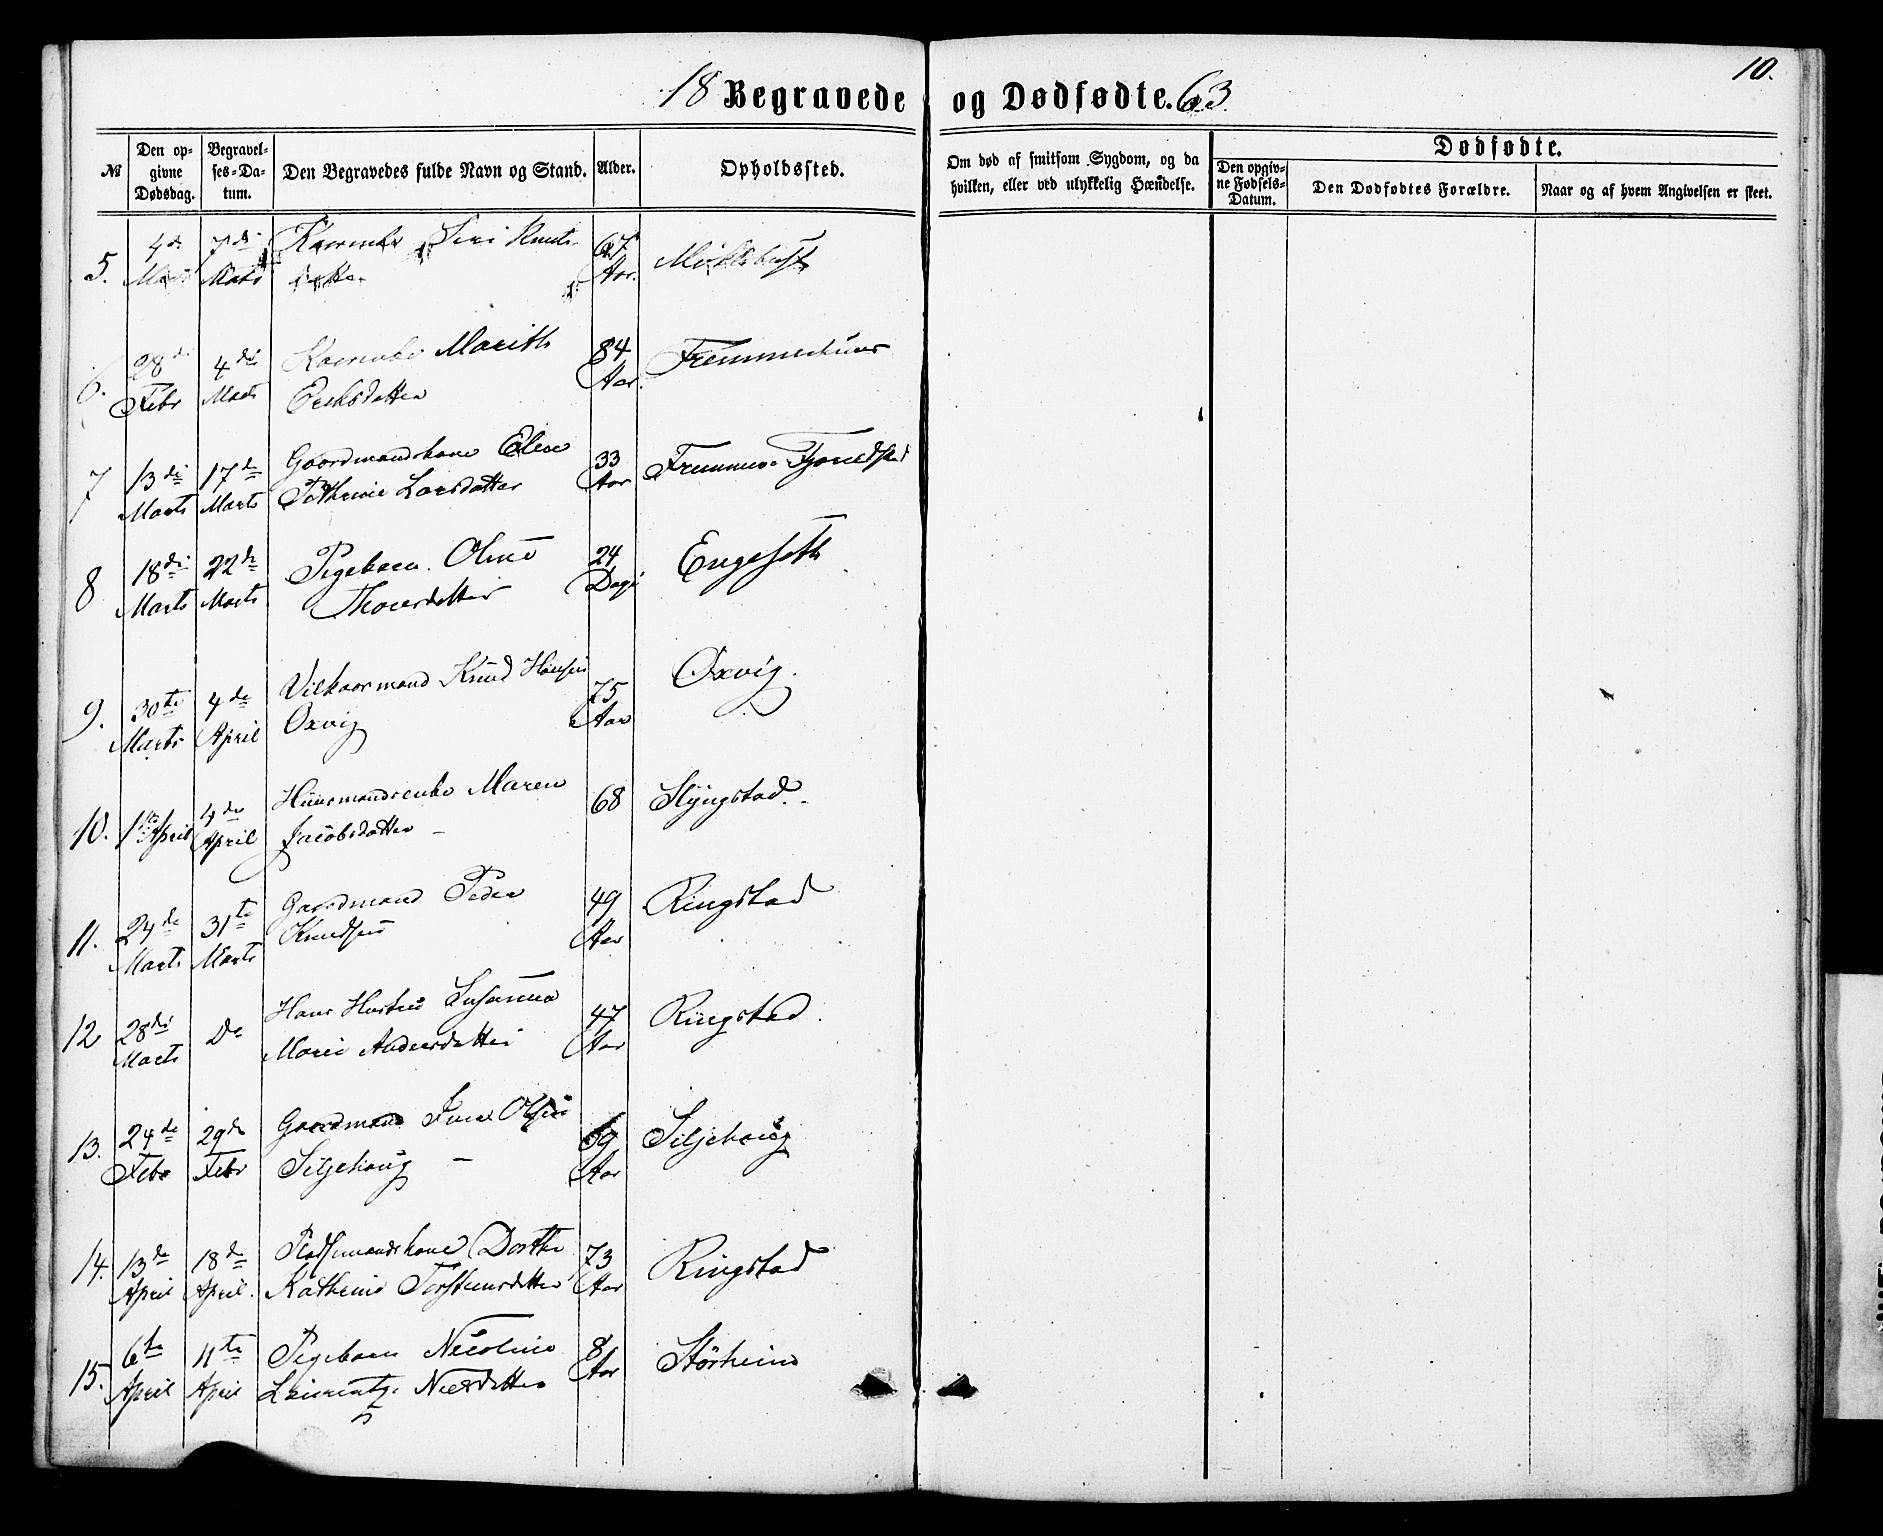 10.
18 Begravede og Dødfødte. 63.
№
Den opgivne Dødsdag.
Begravelses-Datum.
Den Begravedes fulde Navn og Stand.
Alder.
Opholdssted.
Om død af smitsom Sygdom, og da hvilken, eller ved ulykkelig Hændelse.
Dødfødte.
Den opgivne Fødsels-Datum.
Den Dødfødtes Forældre.
Naar og af hvem Angivelsen er skeet.
5. 4de 7de Siri Knuts- 67
Marts Marts datter Aar. Myklebust
6. 28de 4de Marith 84
Febr Marts Ericksdatter Aar.
7 13de 17de Gaardmandskone Eline 33
Marts Marts Larsdatter Aar
8 18de 22de Pigebarn Oline 24 Engeseth
Marts Marts Dage
9. 30te 4de Vilkaarmand Knud Hansen 75 Oxvig.
Marts April Oxvig Aar
10. 1ste April 4de Huusmandsenke Maren 68 Slyngstad.
April Jacobsdatter –
11. 24de 31te Gaardmand Peder 49 Ringstad
Marts Marts Knudsen Aar
12 28de Do Hans Hustru Susanna 47 Ringstad.
Marts Marie Andersdatter Aar
13. 24de 29de Gaardmand Iver Olsen 69 Siljehaug
Febr Febr Siljehaug – Aar
14. 13de 18de Pladsmandskone Dorthe 73 Ringstad
April April. Kathrine Torstensdatter Aar
15. 6te 11te Pigebarn Nicoline 8 Störheim
April April Nielsdatter Aar